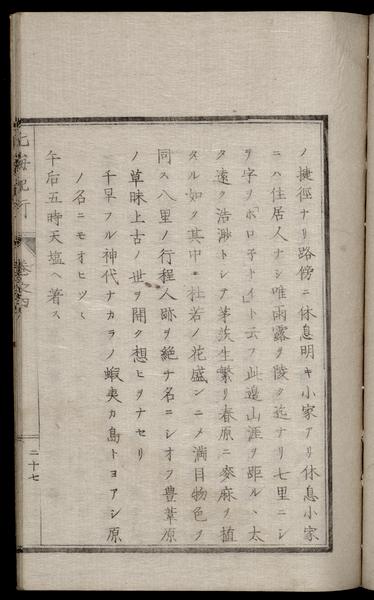 ノ捷徑ナリ路傍ニ休息明キ小家アリ休息小家
ニハ住居人ナシ唯雨露ヲ陵ク迄ナリ七里ニシ
ヲ字ヲ「ホロ子トイト云フ此邊山涯ヲ距ルヿ太
タ遠ク浩渺トシテ茅茨生繁リ春原ニ麥麻ヲ植
タル如ク其中ニ杜若ノ花盛ンニメ満目物色ヲ
同ス八里ノ行程人跡ヲ絶チ名ニシオフ豊葦原
ノ草昧上古ノ世ヲ開ク想ヒヲナセリ
千早フル神代ナカラノ蝦夷カ島トヨアシ原
ノ名ニモオヒツヽ
午后五時天塩ヘ著ス
北海紀行
巻之四
二十七